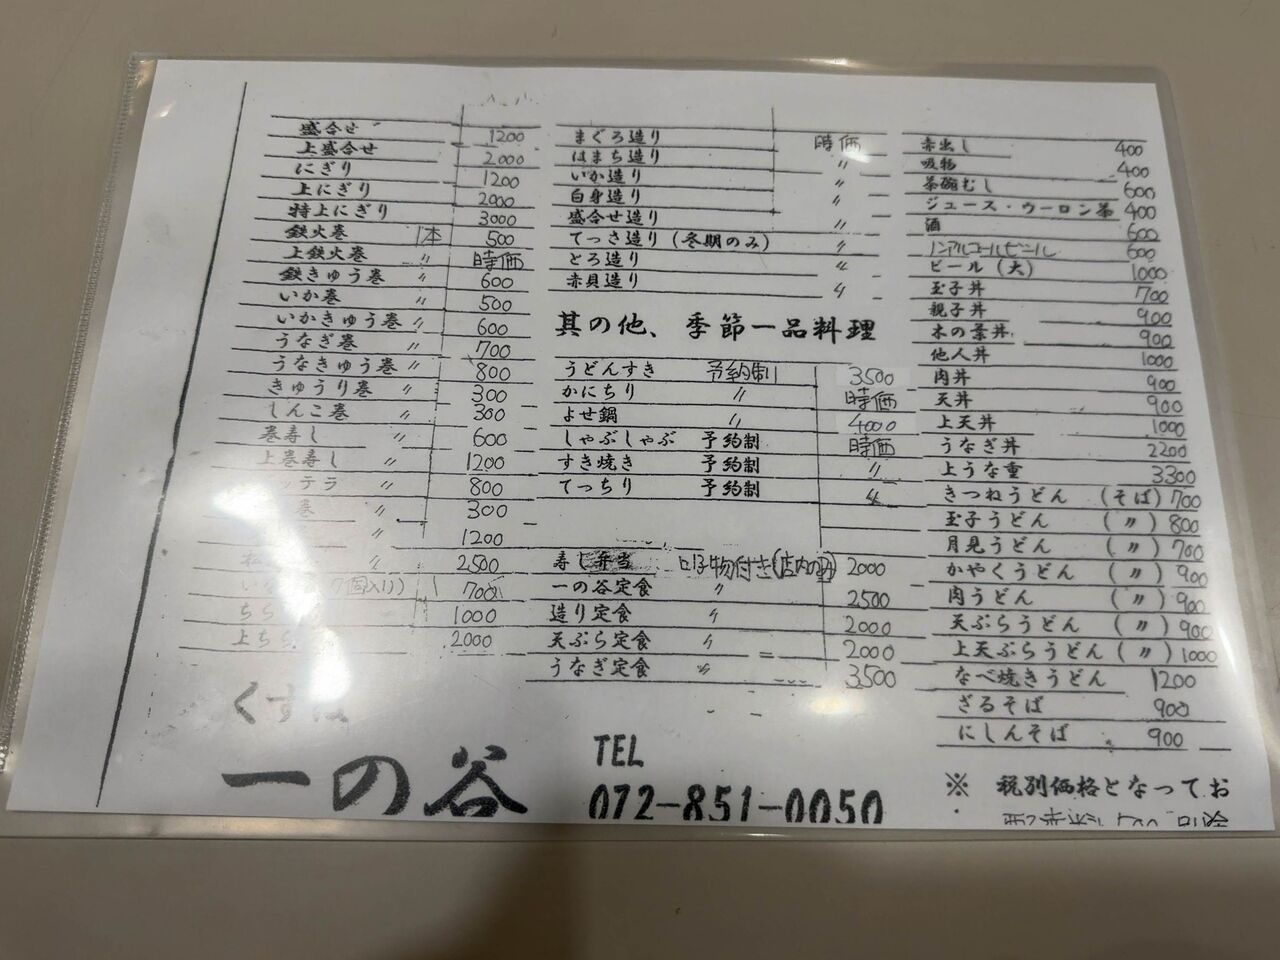 盛合せ 1200
上盛合せ 2000
にぎり 1200
上にぎり 2000
特上にぎり 3000
鉄火巻 1本 500
上鉄火巻 〃 時価
鉄きゅう巻 〃 600
いか巻 500
いかきゅう巻 〃 600
うなぎ巻 700
うなきゅう巻 〃 800
きゅうり巻 300
しんこ巻 〃 300
巻寿し 〃 600
上巻寿し 〃 1200
ッテラ 〃 800
巻 300
〃 1200
〃 2500
7個入り) 700
ちら 1000
上ちら 2000
まぐろ造り 時価
はまち造り 〃
いか造り 〃
白身造り 〃
盛合せ造り 〃
てっさ造り(冬期のみ) 〃
とろ造り 〃
赤貝造り 〃
其の他、季節一品料理
うどんすき 予約制 3500
かにちり 〃 時価
よせ鍋 〃 4000
しゃぶしゃぶ 予約制 時価
すき焼き 予約制 〃
てっちり 予約制 〃
寿し弁当 物付き(店内のみ) 2000
一の谷定食 〃 2500
造り定食 〃 2000
天ぷら定食 〃 2000
うなぎ定食 〃 3500
赤出し 400
吸物 400
茶碗むし 600
ジュース・ウーロン茶 400
酒 600
ノンアルコールビール 600
ビール(大) 1000
玉子丼 700
親子丼 900
木の葉丼 900
他人丼 1000
肉丼 900
天丼 900
上天丼 1000
うなぎ丼 2200
上うな重 3300
きつねうどん (そば) 700
玉子うどん (〃) 800
月見うどん (〃) 700
かやくうどん (〃) 900
肉うどん (〃) 900
天ぷらうどん (〃) 900
上天ぷらうどん (〃) 1000
なべ焼きうどん 1200
ざるそば 900
にしんそば 900
くずは
一の谷
TEL
072-851-0050
※ 税別価格となってお